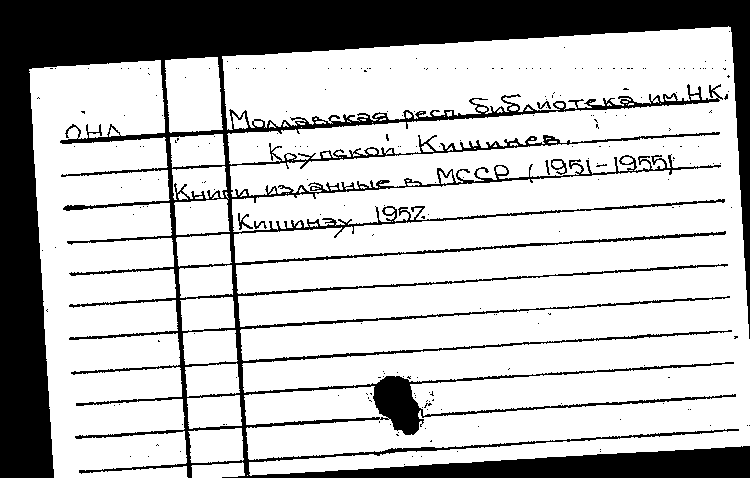 ОНЛ Молдавская респ. библиотека им. Н.К.
Крупской Кишинев.
Книги, изданные в МССР (1951-1955)
Кишинэу, 1957